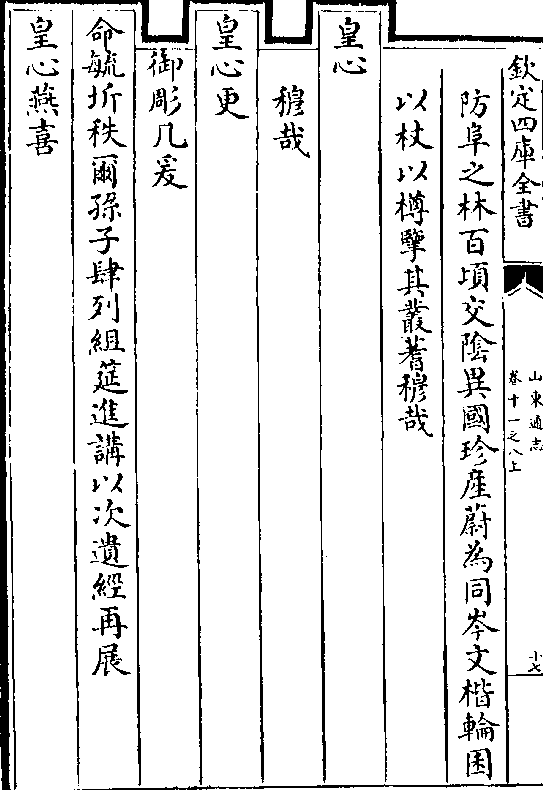 欽定四庫全書
山東通志
卷十一之八上
十七
防阜之林百頃交陰異國珍産蔚為同岑文楷輪囷
以杖以樽擥其叢蓍穆哉
皇心
穆哉
皇心更
御彫几爰
命毓圻秩爾孫子肆列組筵進講以次遺經再展
皇心燕喜